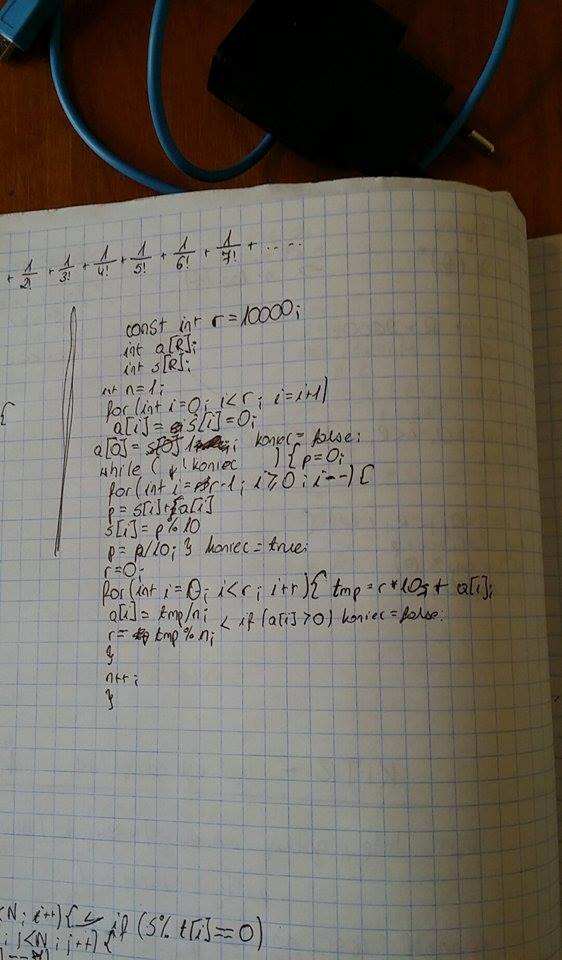 + 1/2! + 1/3! + 1/4! + 1/5! + 1/6! + 1/7! + .....
const int r = 10000;
int a[R];
int s[R];
int n=1;
for(int i=0; i<r; i=i+1)
{
a[i] = s[i] = 0;
a[0] = 1; koniec = false;
while ( ! koniec ) { p=0;
for(int i=r-1; i≥0; i--) {
p = s[i]+a[i]
s[i] = p%10
p = p/10; } koniec = true;
r=0;
for(int i=0; i<r; i++){ tmp = r*10 + a[i];
a[i] = tmp/n; < if (a[i]>0) koniec=false;
r = tmp % n;
}
n++;
}
<N; i++) { if (5% t[i]==0)
; j<N; j++) {